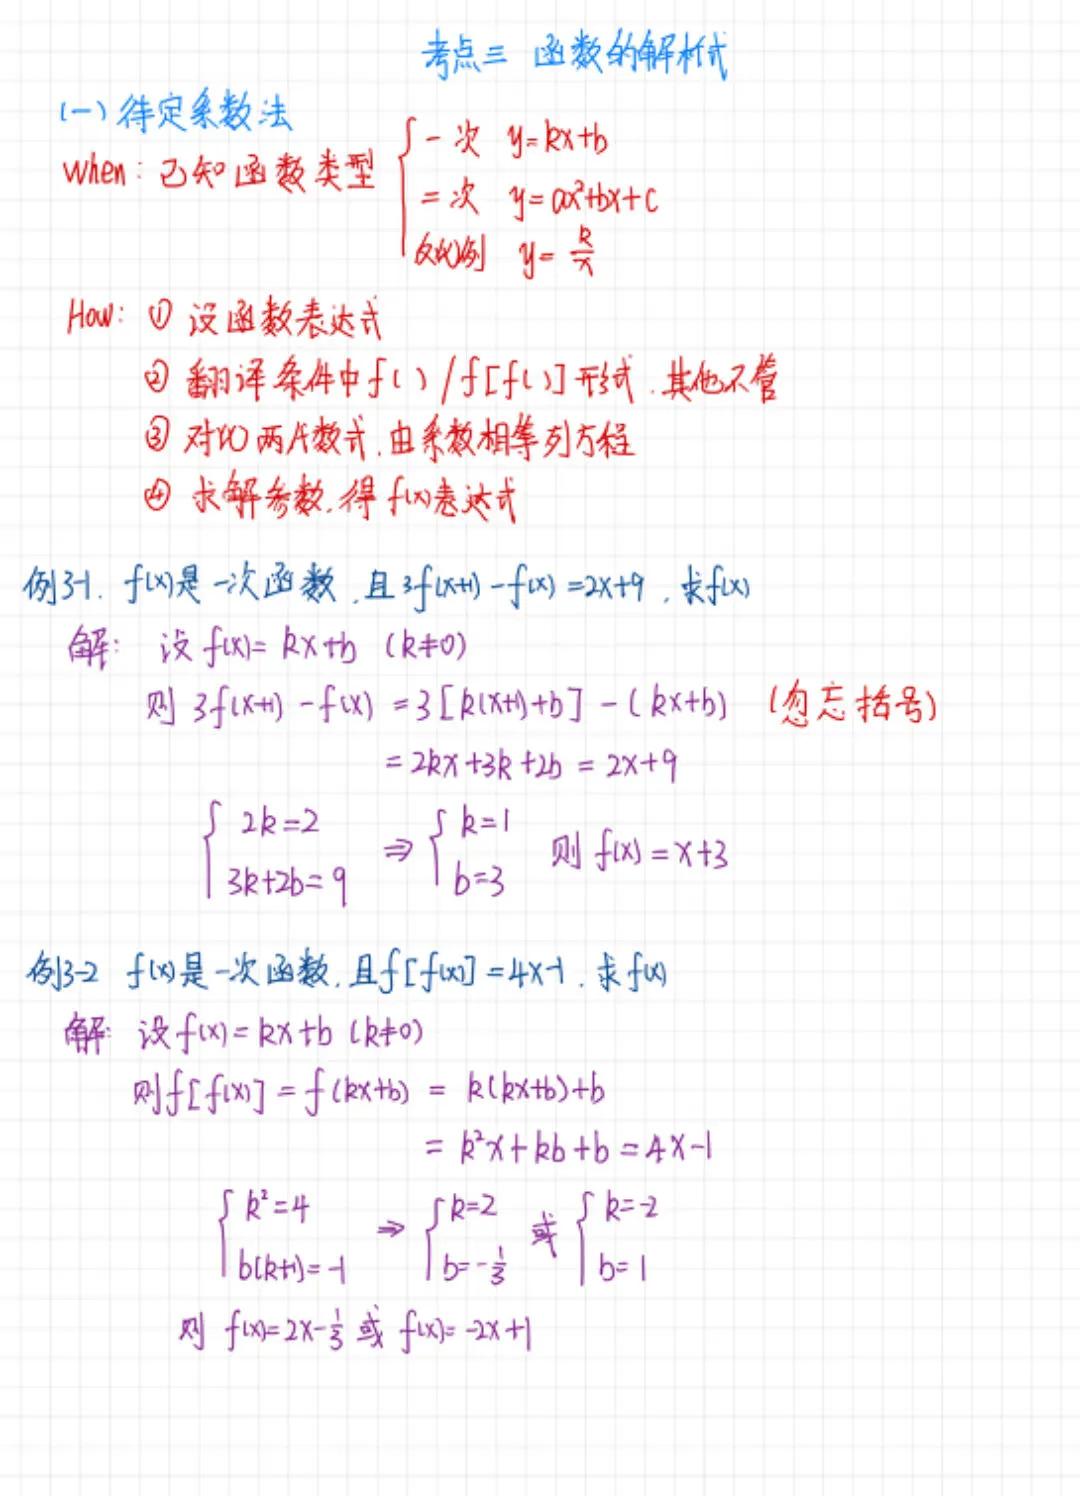 考点三 函数的解析式
(一)待定系数法
when: 已知函数类型 { 一次 y=kx+b
二次 y=ax²+bx+c
反比例 y=k/x
How: ① 设函数表达式
② 翻译条件中f( )/f[f( )]形式.其他不管
③ 对比两片数式.由系数相等列方程
④ 求解参数.得f(x)表达式
例3-1. f(x)是一次函数.且3f(x+1)-f(x)=2x+9.求f(x)
解: 设f(x)=kx+b (k≠0)
则 3f(x+1)-f(x)=3[k(x+1)+b]-(kx+b) (勿忘括号)
=2kx+3k+2b=2x+9
{ 2k=2 ⇒ { k=1
3k+2b=9 b=3 则f(x)=x+3
例3-2 f(x)是一次函数.且f[f(x)]=4x-1.求f(x)
解: 设f(x)=kx+b (k≠0)
则f[f(x)]=f(kx+b)=k(kx+b)+b
=k²x+kb+b=4x-1
{ k²=4 ⇒ { k=2 或 { k=-2
b(k+1)=-1 b=-1/3 b=1
则 f(x)=2x-1/3 或 f(x)=-2x+1